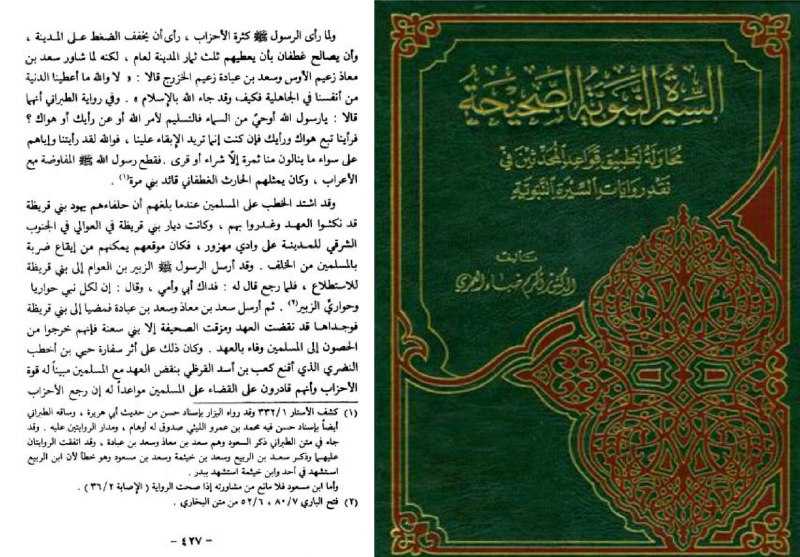 ولما رأى الرسول ﷺ كثرة الأحزاب ، رأى أن يخفف الضغط على المدينة ،
وأن يصالح غطفان بأن يعطيهم ثلث ثمار المدينة لعام ، لكنه لما شاور سعد بن
معاذ زعيم الأوس وسعد بن عبادة زعيم الخزرج قالا : « لا والله ما أعطينا الدنية
من أنفسنا في الجاهلية فكيف وقد جاء الله بالإسلام » . وفي رواية الطبراني أنهما
قالا : يارسول الله أوحيٌ من السماء فالتسليم لأمر الله أو عن رأيك أو هواك ؟
فرأينا تبع هواك ورأيك فإن كنت إنما تريد الإبقاء علينا ، فوالله لقد رأيتنا وإياهم
على سواء ما ينالون منا ثمرة إلّا شراء أو قرى . فقطع رسول الله ﷺ المفاوضة مع
الأعراب ، وكان يمثلهم الحارث الغطفاني قائد بني مرة(١) .
وقد اشتد الخطب على المسلمين عندما بلغهم أن حلفاءهم يهود بني قريظة
قد نكثوا العهد وغدروا بهم ، وكانت ديار بني قريظة في العوالي في الجنوب
الشرقي للمدينة على وادي مهزور ، فكان موقعهم يمكنهم من إيقاع ضربة
بالمسلمين من الخلف . وقد أرسل الرسول ﷺ الزبير بن العوام إلى بني قريظة
للاستطلاع ، فلما رجع قال له : فداك أبي وأمي ، وقال : إن لكل نبي حواريا
وحواريّ الزبير(٢) . ثم أرسل سعد بن معاذ وسعد بن عبادة فمضيا إلى بني قريظة
فوجداها قد نقضت العهد ومزقت الصحيفة إلا بني سعنة فإنهم خرجوا من
الحصون إلى المسلمين وفاء بالعهد . وكان ذلك على أثر سفارة حيي بن أخطب
النضري الذي أقنع كعب بن أسد القرظي بنقض العهد مع المسلمين مبيناً له قوة
الأحزاب وأنهم قادرون على القضاء على المسلمين مواعداً له إن رجع الأحزاب
(١) كشف الأستار ٣٣٢/١ وقد رواه البزار بإسناد حسن من حديث أبي هريرة ، وساقه الطبراني
أيضاً بإسناد حسن فيه محمد بن عمرو الليثي صدوق له أوهام ، ومدار الروايتين عليه . وقد
جاء في متن الطبراني ذكر السعود وهم سعد بن معاذ وسعد بن عبادة ، وقد اتفقت الروايتان
عليهما وذكر سعد بن الربيع وسعد بن خيثمة وسعد بن مسعود وهو خطأ لأن ابن الربيع
استشهد في أحد وابن خيثمة استشهد ببدر .
وأما ابن مسعود فلا مانع من مشاورته إذا صحت الرواية ( الإصابة ٣٦/٢ ) .
(٢) فتح الباري ٨٠/٧ ، ٥٢/٦ من متن البخاري .
- ٤٢٧ -
السيرة النبوية الصحيحة
محاولة لتطبيق قواعد المحدثين في
نقد روايات السيرة النبوية
تأليف
الدكتور أكرم ضياء العمري